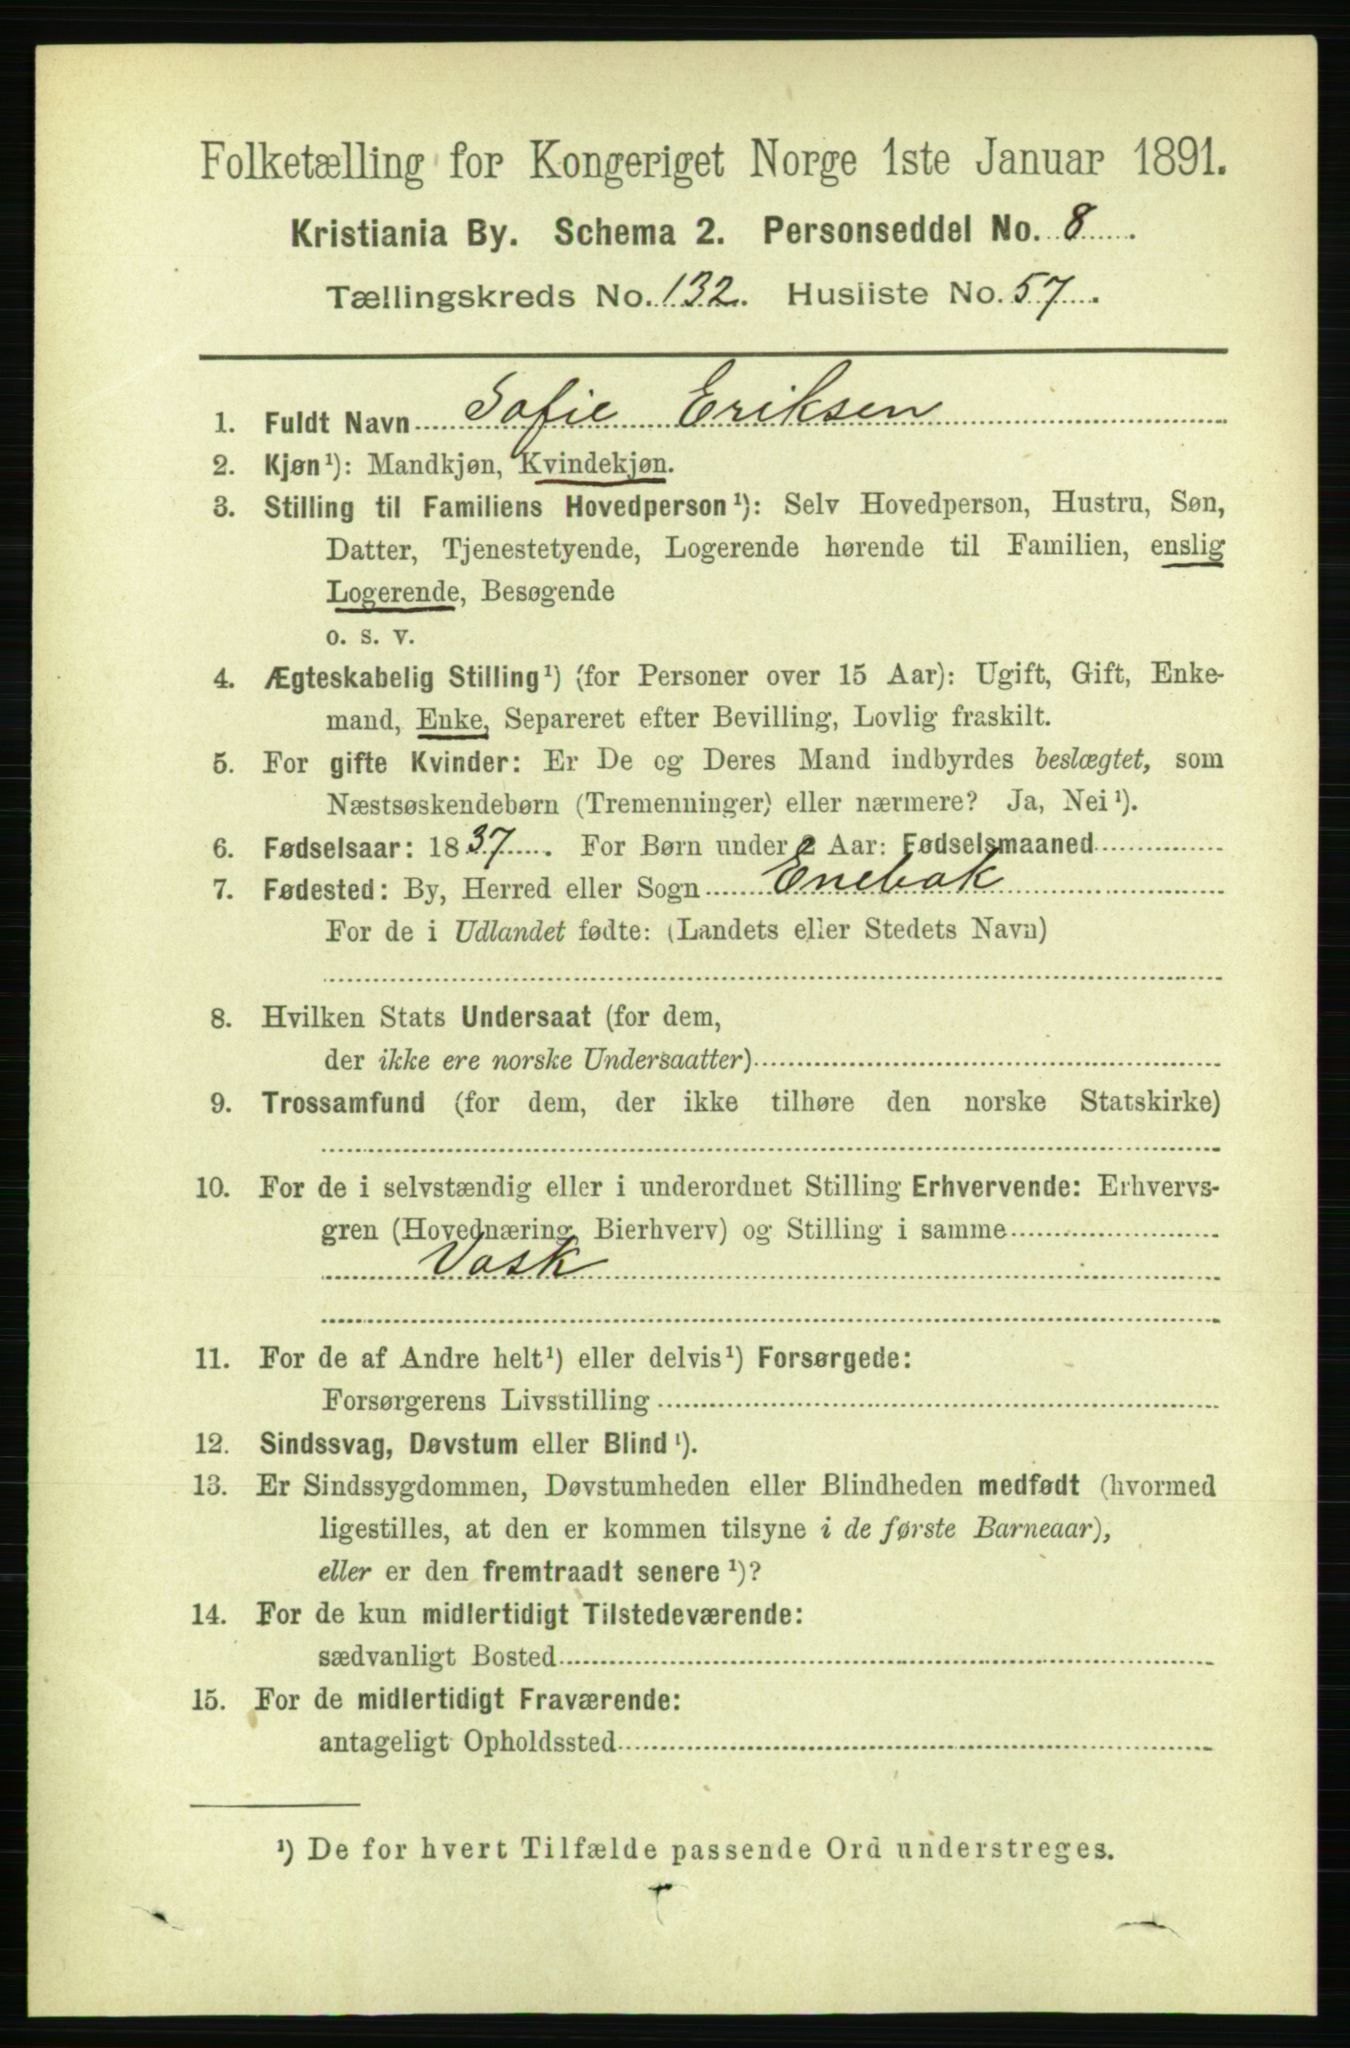 Folketælling for Kongeriget Norge 1ste Januar 1891.
Kristiania By. Schema 2. Personseddel No. 8.
Tællingskreds No. 132. Husliste No. 57.
1. Fuldt Navn Sofie Eriksen
2. Kjøn¹): Mandkjøn, Kvindekjøn.
3. Stilling til Familiens Hovedperson¹): Selv Hovedperson, Hustru, Søn,
Datter, Tjenestetyende, Logerende hørende til Familien, enslig
Logerende, Besøgende
o. s. v.
4. Ægteskabelig Stilling¹) (for Personer over 15 Aar): Ugift, Gift, Enke-
mand, Enke, Separeret efter Bevilling, Lovlig fraskilt.
5. For gifte Kvinder: Er De og Deres Mand indbyrdes beslægtet, som
Næstsøskendebørn (Tremenninger) eller nærmere? Ja, Nei¹).
6. Fødselsaar: 1837. For Børn under 2 Aar: Fødselsmaaned
7. Fødested: By, Herred eller Sogn Enebak
For de i Udlandet fødte: (Landets eller Stedets Navn)
8. Hvilken Stats Undersaat (for dem,
der ikke ere norske Undersaatter)
9. Trossamfund (for dem, der ikke tilhøre den norske Statskirke)
10. For de i selvstændig eller i underordnet Stilling Erhvervende: Erhvervs-
gren (Hovednæring, Bierhverv) og Stilling i samme
Vask
11. For de af Andre helt¹) eller delvis¹) Forsørgede:
Forsørgerens Livsstilling
12. Sindssvag, Døvstum eller Blind¹).
13. Er Sindssygdommen, Døvstumheden eller Blindheden medfødt (hvormed
ligestilles, at den er kommen tilsyne i de første Barneaar),
eller er den fremtraadt senere¹)?
14. For de kun midlertidigt Tilstedeværende:
sædvanligt Bosted
15. For de midlertidigt Fraværende:
antageligt Opholdssted
¹) De for hvert Tilfælde passende Ord understreges.